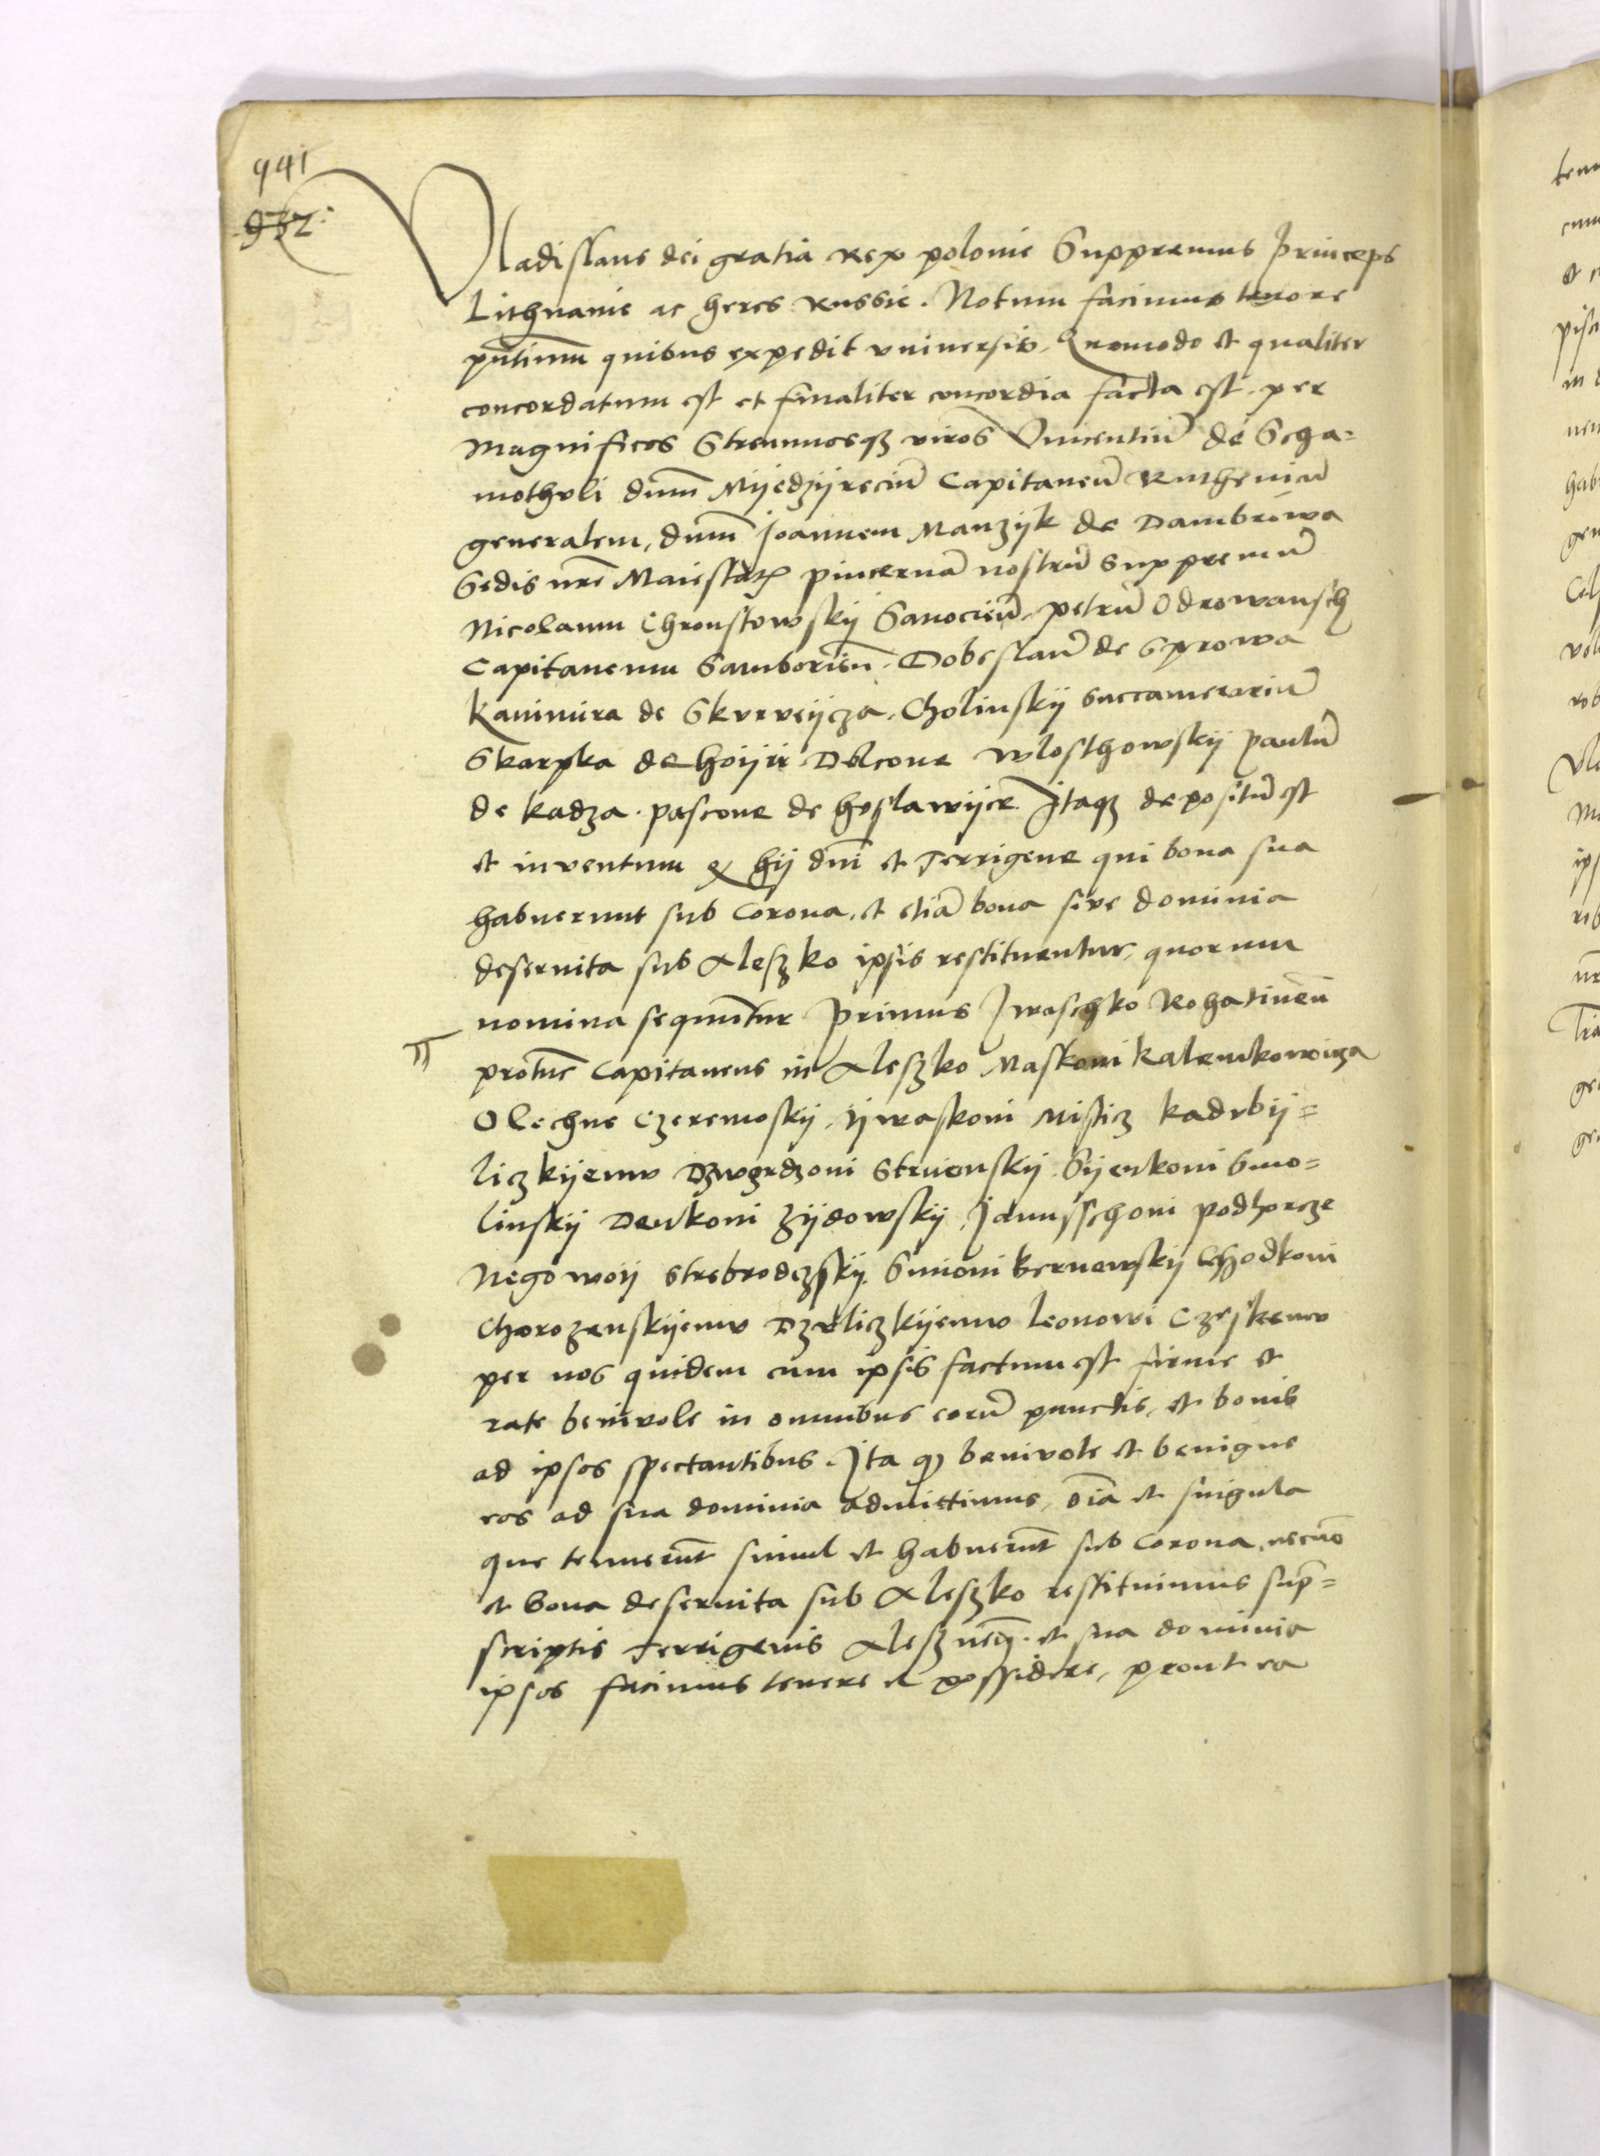 941
932.
Vladislaus dei gratia Rex polonie Suppremus Princeps
Lithuanie ac heres Russie. Notum facimus tenore
pñtium quibus expedit vniversis. Quomodo et qualiter
concordatum est et finaliter concordia facta est. per
Magnificos Strennuosqz viros Vincentiũ de Scha=
mothuli dnm̃ Myedzyreciũ Capitaneũ Ruthenicũ
generalem, dnm̃ Joannem Manzyk de Dambrowa
Sedis nr̃e Maiestatis pincernã nostrũ Suppremũ
Nicolaum Chronstowskij Sanocieñ. petrũ Odrowansch
Capitaneum Samborieñ. Dobeslaũ de Sprowa
Kanimira de Skrveijcza. Cholinskij succamerariũ
Skarpka de hoijir Dolcone Wlosthowskij Paulũ
de Kadza. pascone de hoslawijce Itaqz depositũ est
et inventum qz hij dñi et Terrigene qui bona sua
habuerunt sub Corona, et etiã bona sive dominia
deservita sub Aleszko ipsis restituentur, quorum
nomina sequuntur Primus Iwaschko Rohatineñ
protũc Capitaneus in Aleszko Maskoni Kalenikowicza
Olechne Czeremoskij, Ijwaskoni Misticz Kadvbij=
liczkijemv Dzwgrdzoni Strvienskij Sijenkoni Smo=
linskij Denkoni Zijdowskij, Janusschoni podhorcze
Negowoij Strebrodczskij. Smioni Bernowskij Chodkoni
Chorozenskijemv Dzvliczkijemv Leonowi Czeskemv
per nos quidem cum ipsis factum est firme et
rate benivole in omnibus eorũ punctis, et bonis
ad ipsos spectantibus. Ita qz benivole et benigne
eos ad sua dominia admittimus, oĩa et singula
que tenuerũt simul et habuerũt sub Corona, necnõ
et bona deservita sub Aleszko restituimus sup̃=
scriptis Terrigenis Aleszneñ. et sua dominia
ipsos facimus tenere et possidere, prout ea